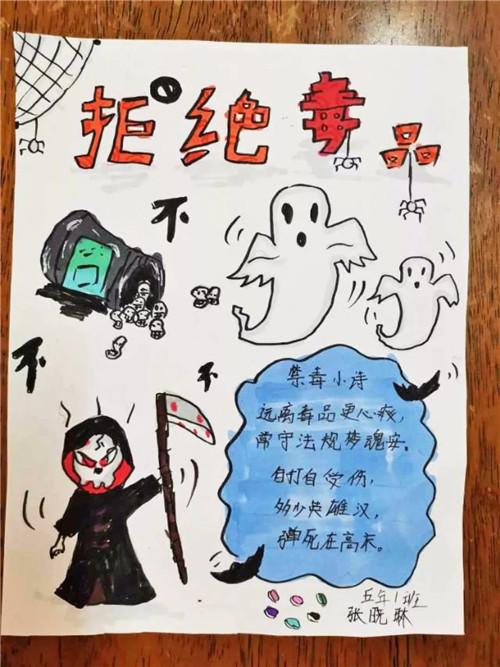 拒绝毒品
不
不
不
禁毒小诗
远离毒品更心，
常守法规梦魂安。
自打自受伤，
多少英雄汉，
弹死在高床。
五年1班
张晓琳